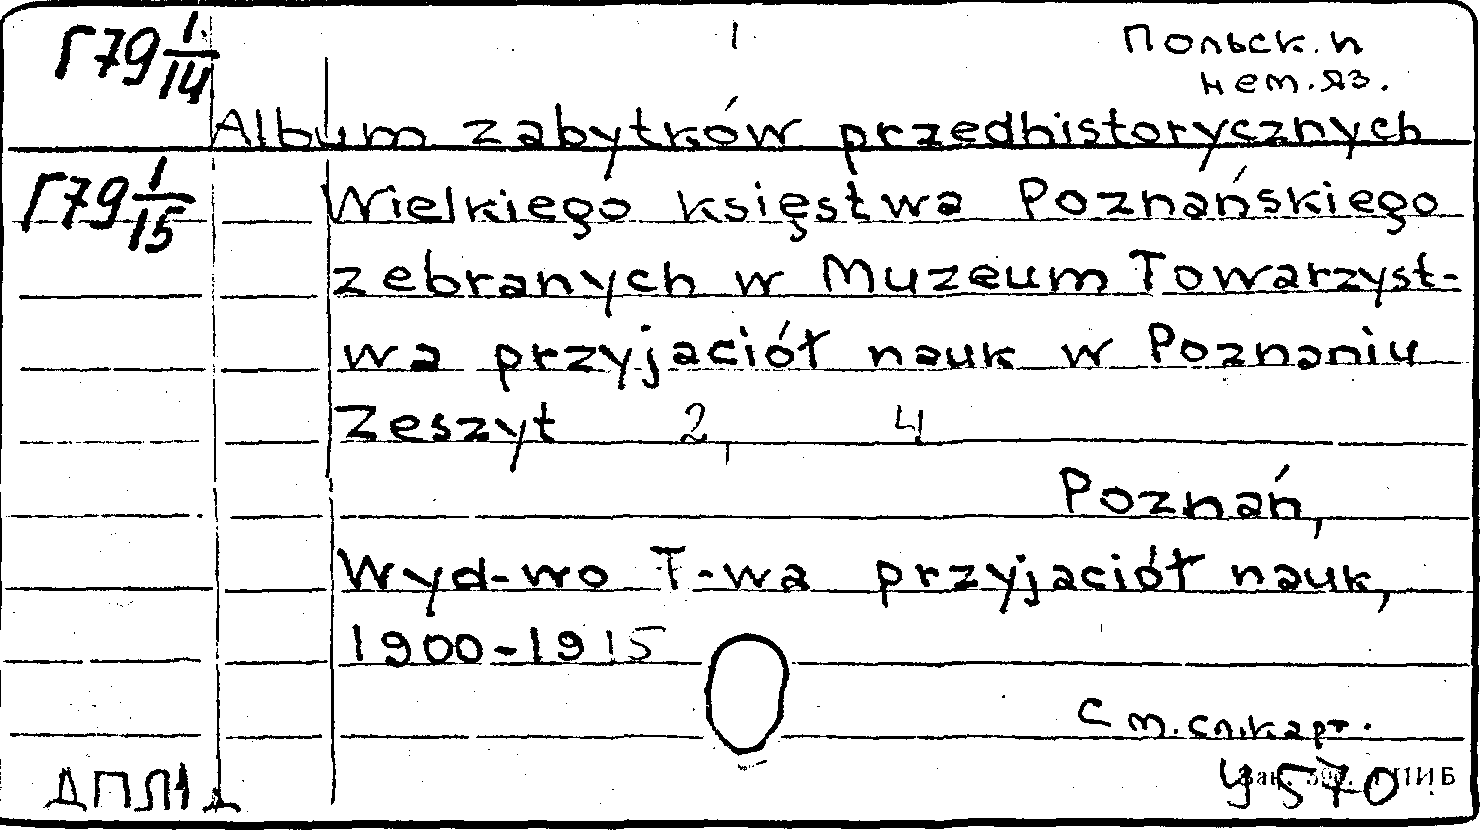 Г79 1/14
1
Польск. и
нем. яз.
Album zabytków przedhistorycznych
Г79 1/15
Wielkiego księstwa Poznańskiego
zebranych w Muzeum Towarzyst-
wa przyjaciół nauk w Poznaniu
Zeszyt 2, 4
Poznań,
Wyd-wo T-wa przyjaciół nauk,
1900-1915
См. сл. карт.
У 570